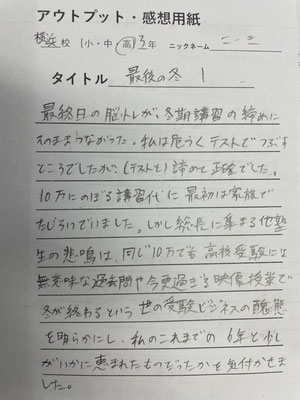 アウトプット・感想用紙
横浜校 (小・中・高)3年 ニックネーム ニーニ
タイトル 最後の冬 1
最終日の脳トレが、冬期講習の締めに
そのままつながった。私は危うくテストでつぶす
ところでしたが、(テストを)諦めて正解でした。
10万にのぼる講習代に最初は家族で
たじろいでいました。しかし総長に集まる他塾
生の悲鳴は、同じ10万でも高校受験には
無意味な過去問や今更過ぎる映像授業で
冬が終わるという世の受験ビジネスの醜態
を明らかにし、私のこれまでの6年と少し
がいかに恵まれたものだったかを気付かせま
した。